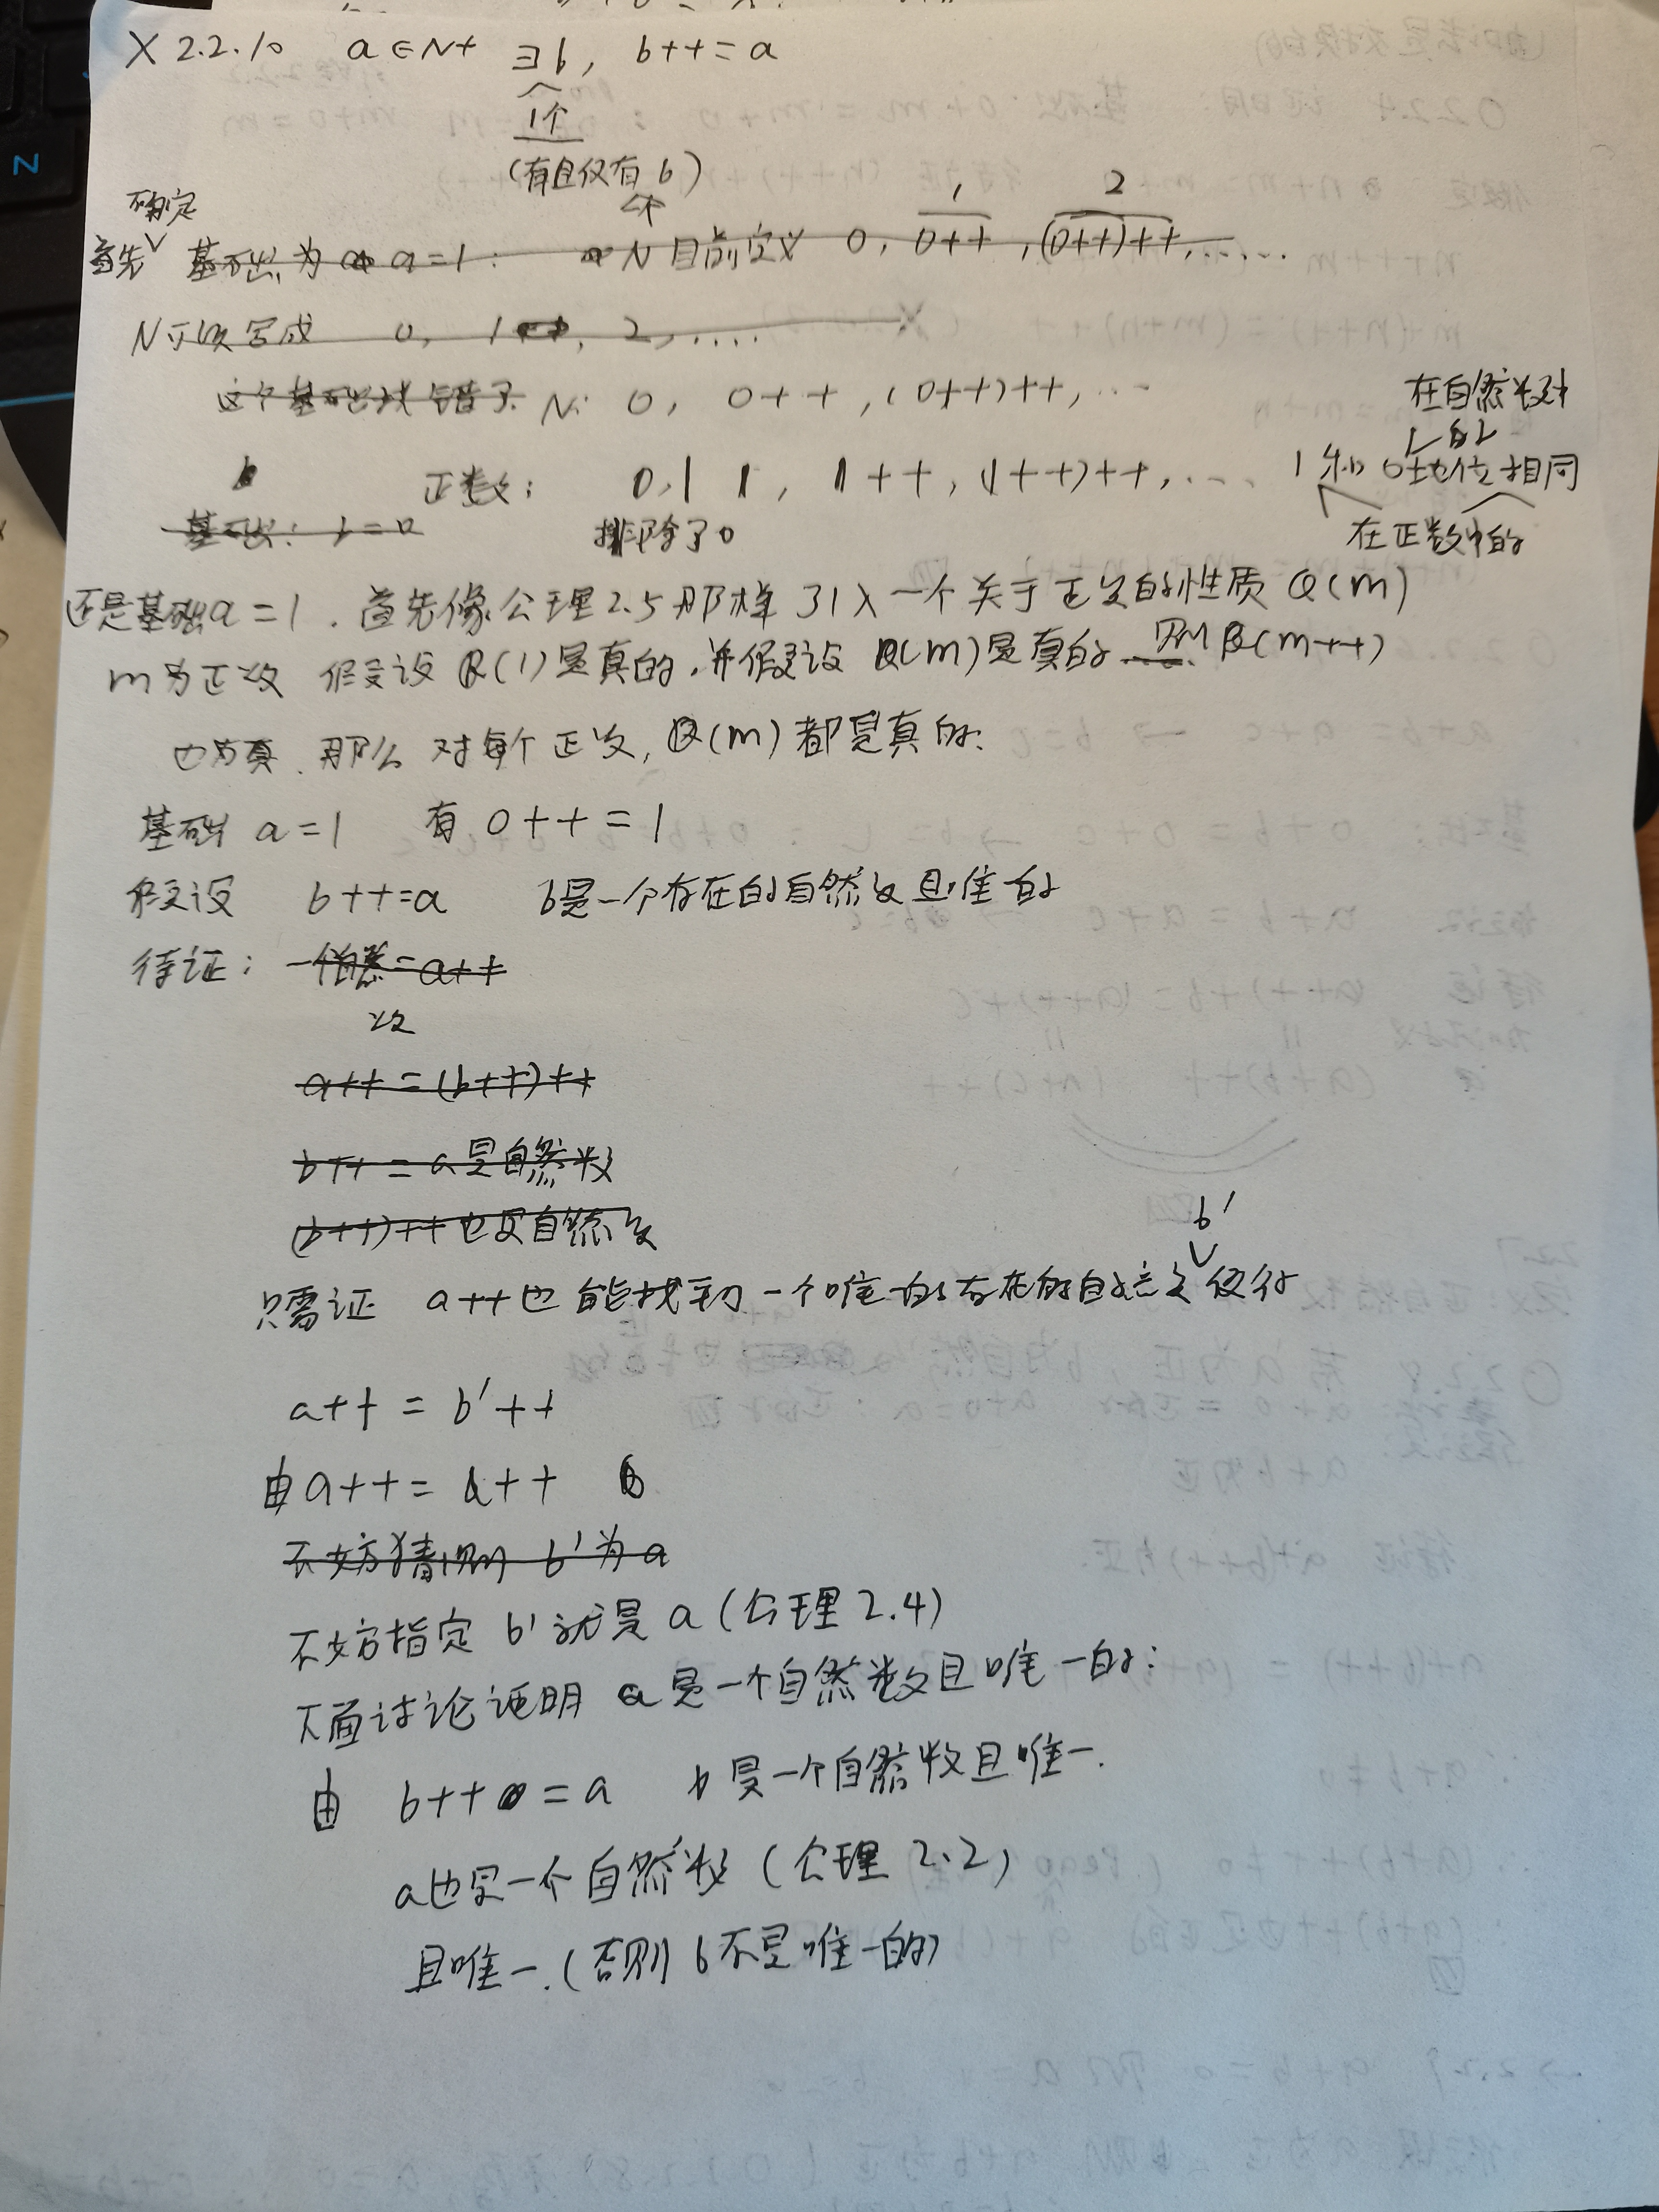 X 2.2.10 a∈N+ ∃b, b++=a
1个
(有且仅有b)
个
确定
首先 基础为 a=1: N目前定义 0, 0++, (0++)++, ……
1 2
N可以写成 0, 1, 2, ....
这个基础找错了 N: 0, 0++, (0++)++, …
在自然数中
b 正数: 0,1 1, 1++, (1++)++, … 1和0地位相同
的
基础: b=0 排除了0 在正数中的
还是基础a=1. 首先像公理2.5那样引入一个关于正数的性质Q(m)
m为正数 假设Q(1)是真的,并假设Q(m)是真的 则Q(m++)
也为真. 那么对每个正数, Q(m)都是真的.
基础 a=1 有 0++=1
假设 b++=a b是一个存在的自然数且唯一的
待证: 一个自然=a++
数
a++=(b++)++
b++=a是自然数
(b++)++也是自然数
b'
只需证 a++也能找到一个唯一的存在的自然数使得
a++ = b'++
由a++= a++
不妨猜测 b'为a
不妨指定 b'就是a(公理2.4)
下面讨论证明a是一个自然数且唯一的:
由 b++=a b是一个自然数且唯一.
a也是一个自然数(公理2.2)
且唯一.(否则b不是唯一的)